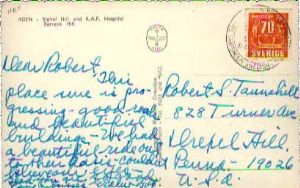 ADEN - Signal Hill and R.A.F. Hospital
Barrack Hill
70
SVERIGE
Dear Robert, This
place sure is pro-
gressing - good roads
and beautiful
buildings - We had
a beautiful ride out
to their oasis - couldn't
believe our eyes
Robert S. Tannehill
828 Turner Ave
Drexel Hill,
Penna - 19026
U.S.A.